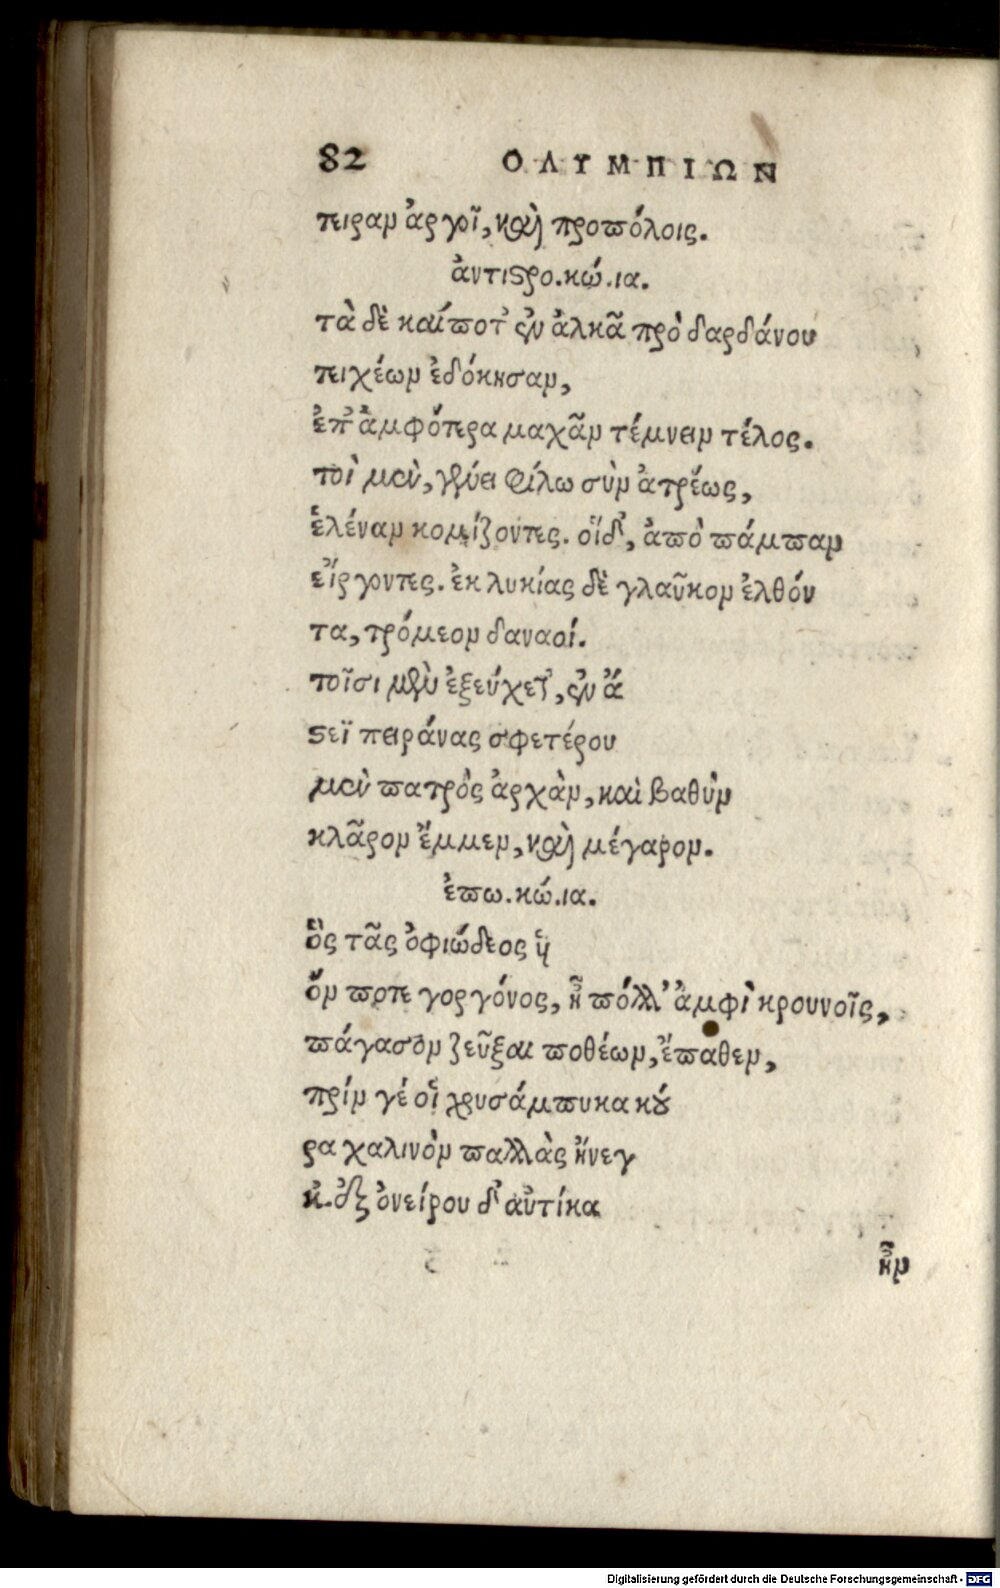 82 ΟΛΥΜΠΙΩΝ
τειραν ἀργοῖ, καὶ προπόλοις.
ἀντιστρο.κώ.ια.
τὰ δὲ καίποτ' ἐν ἀλκᾶ πρὸ δαρδάνου
τειχέων ἐδόκησαν,
ἐπ' ἀμφότερα μαχᾶν τέμνειν τέλος.
τοὶ μὲν, γένει φίλω σὺν ἀτρέως,
ἑλέναν κομίζοντες. οἵδ', ἀπὸ πάμπαν
εἴργοντες. ἐκ λυκίας δὲ γλαῦκον ἐλθόν
τα, τρόμεον δαναοί.
τοῖσι μὲν ἐξεύχετ', ἐν ἄ
στεϊ πειράνας σφετέρου
μὲν πατρὸς ἀρχὰν, καὶ βαθὺν
κλᾶρον ἔμμεν, καὶ μέγαρον.
ἐπω.κώ.ια.
ὃς τᾶς ὀφιώδεος ὑ
όν ποτε γοργόνος, ἦ πόλλ' ἀμφὶ κρουνοῖς,
πάγασον ζεῦξαι ποθέων, ἔπαθεν,
πρίν γέ οἱ χρυσάμπυκα κού
ρα χαλινὸν παλλὰς ἤνεγ
κ. ἐξ ὀνείρου δ' αὐτίκα
ἦν
Digitalisierung gefördert durch die Deutsche Forschungsgemeinschaft - DFG